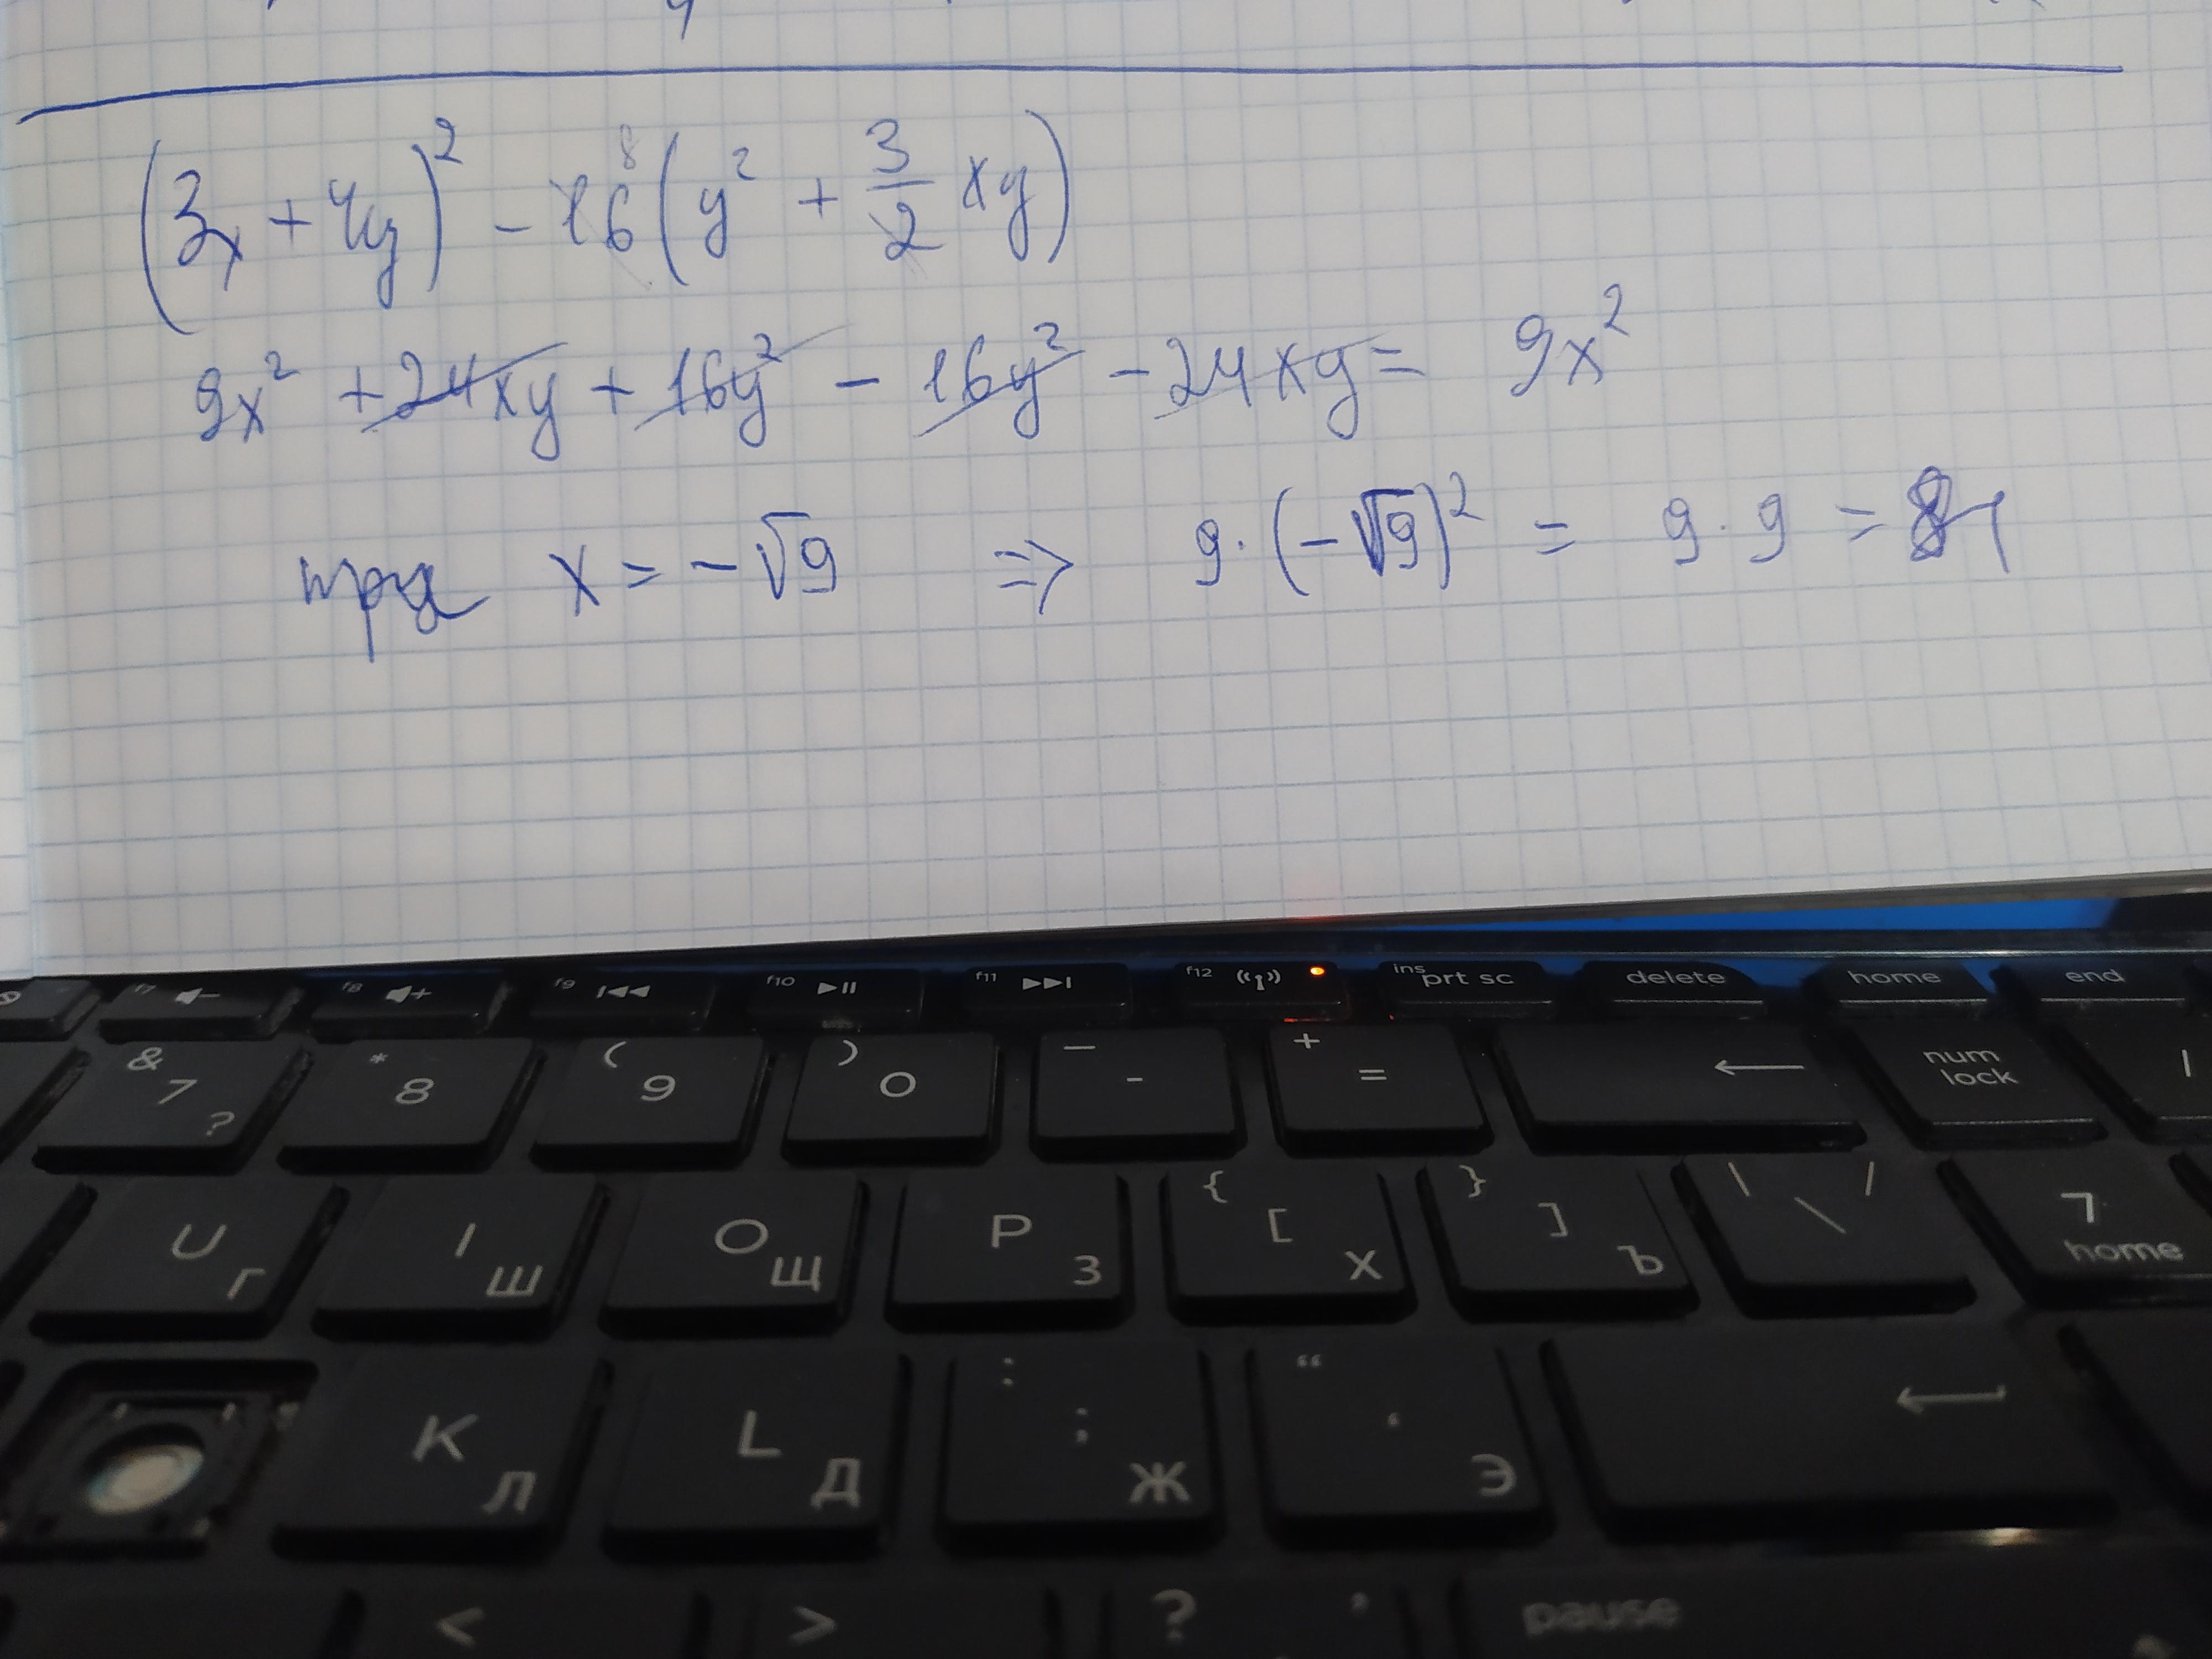 (3x + 4y)² - 16⁸(y² + 3/2 xy)
9x² + 24xy + 16y² - 16y² - 24xy = 9x²
при x = -√9 ⇒ 9·(-√9)² = 9·9 = 81
f7 f8 f9 f10 f11 f12 ins prt sc delete home end
& 7 ? * 8 ( 9 ) 0 — - + = ← num lock
U Г I Ш O Щ P З { [ Х } ] Ъ | \ / 7 home
K Л L Д : ; Ж “ ‘ Э ←
< > ? , pause